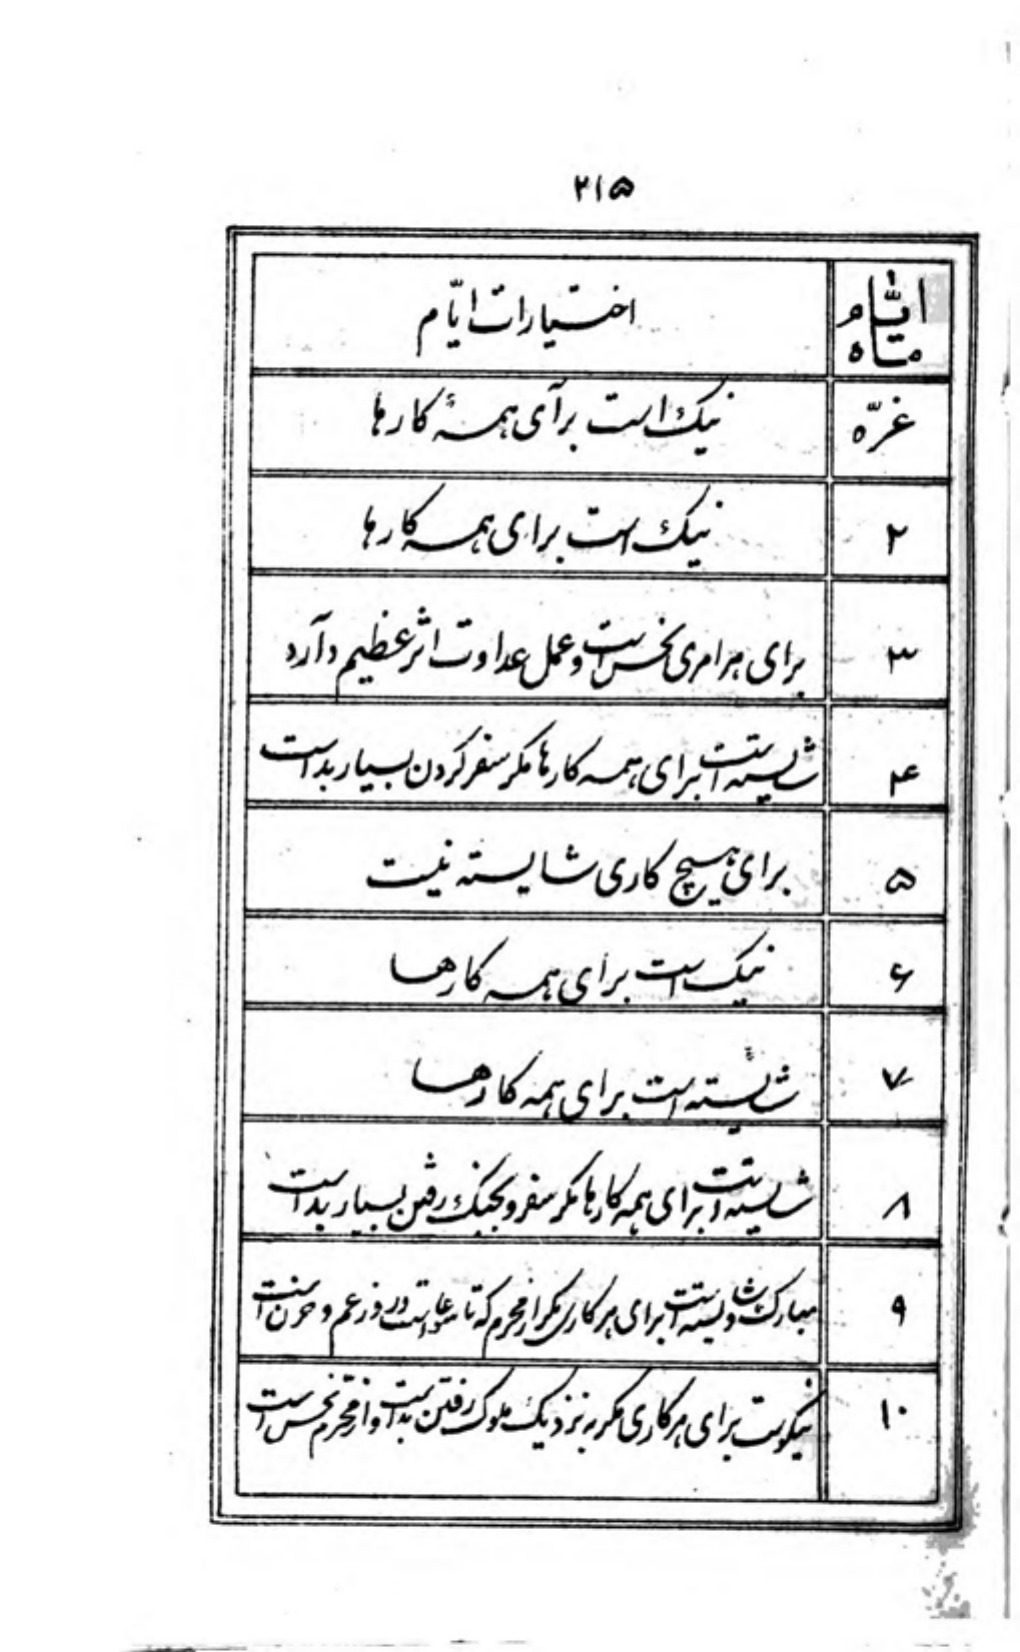 ۲۱۵
ایّام ماه
اختیارات ایّام
غرّه
نیک است برآی همۀ کارها
۲
نیک است برای همه کارها
۳
برای هر امری نحس است و عمل عداوت اثر عظیم دآرد
۴
شایسته است برای همه کارها مگر سفر کردن بسیار بد است
۵
برای هیچ کاری شایسته نیست
۶
نیک است برای همه کارها
۷
شایسته است برای همه کارها
۸
شایسته است برای همه کارها مگر سفر و بجنگ رفتن بسیار بد است
۹
مبارک و شایسته است برای هر کاری مگر از محرم که تاسوعا است و روز غم و حزن است
۱۰
نیکوست برای هر کاری مگر به نزدیک ملوک رفتن بد است و از محرم نحس است